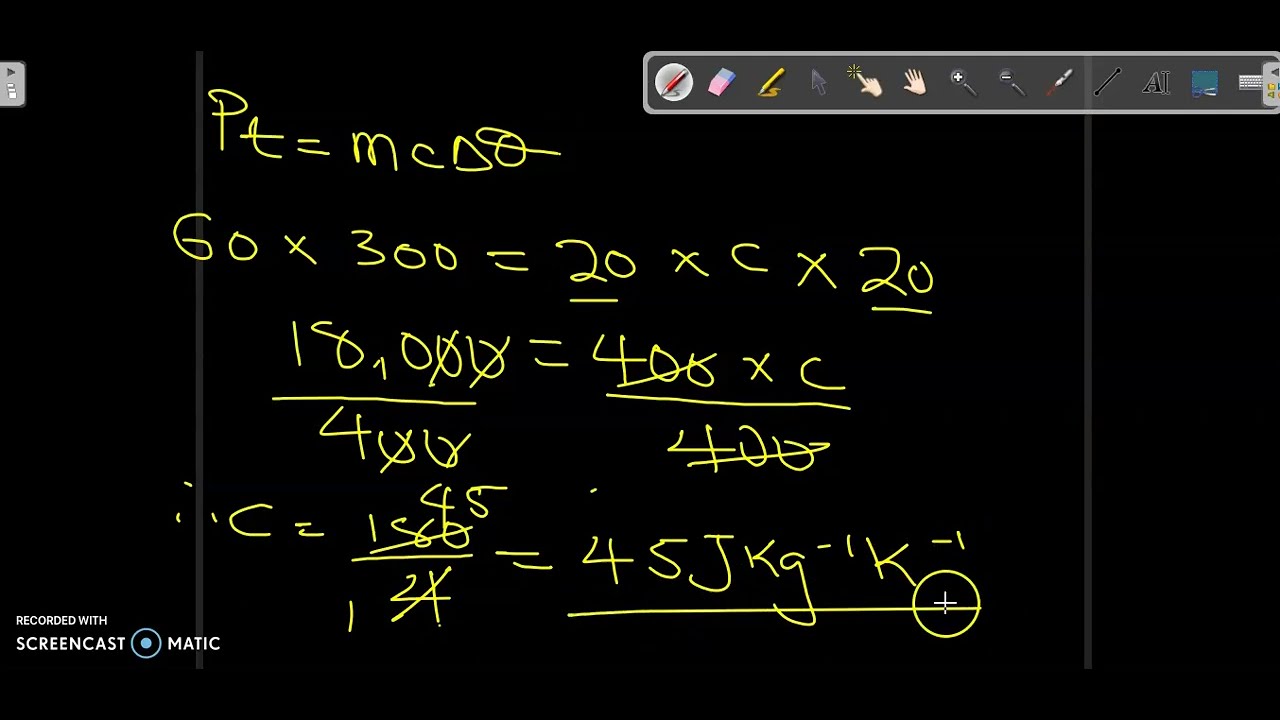 Pt = mcΔθ
60 × 300 = 20 × c × 20
18,000 = 400 × c
400 400
45
∴ C = 180 = 45 J Kg⁻¹ K⁻¹
1 4
AI
RECORDED WITH
SCREENCAST MATIC